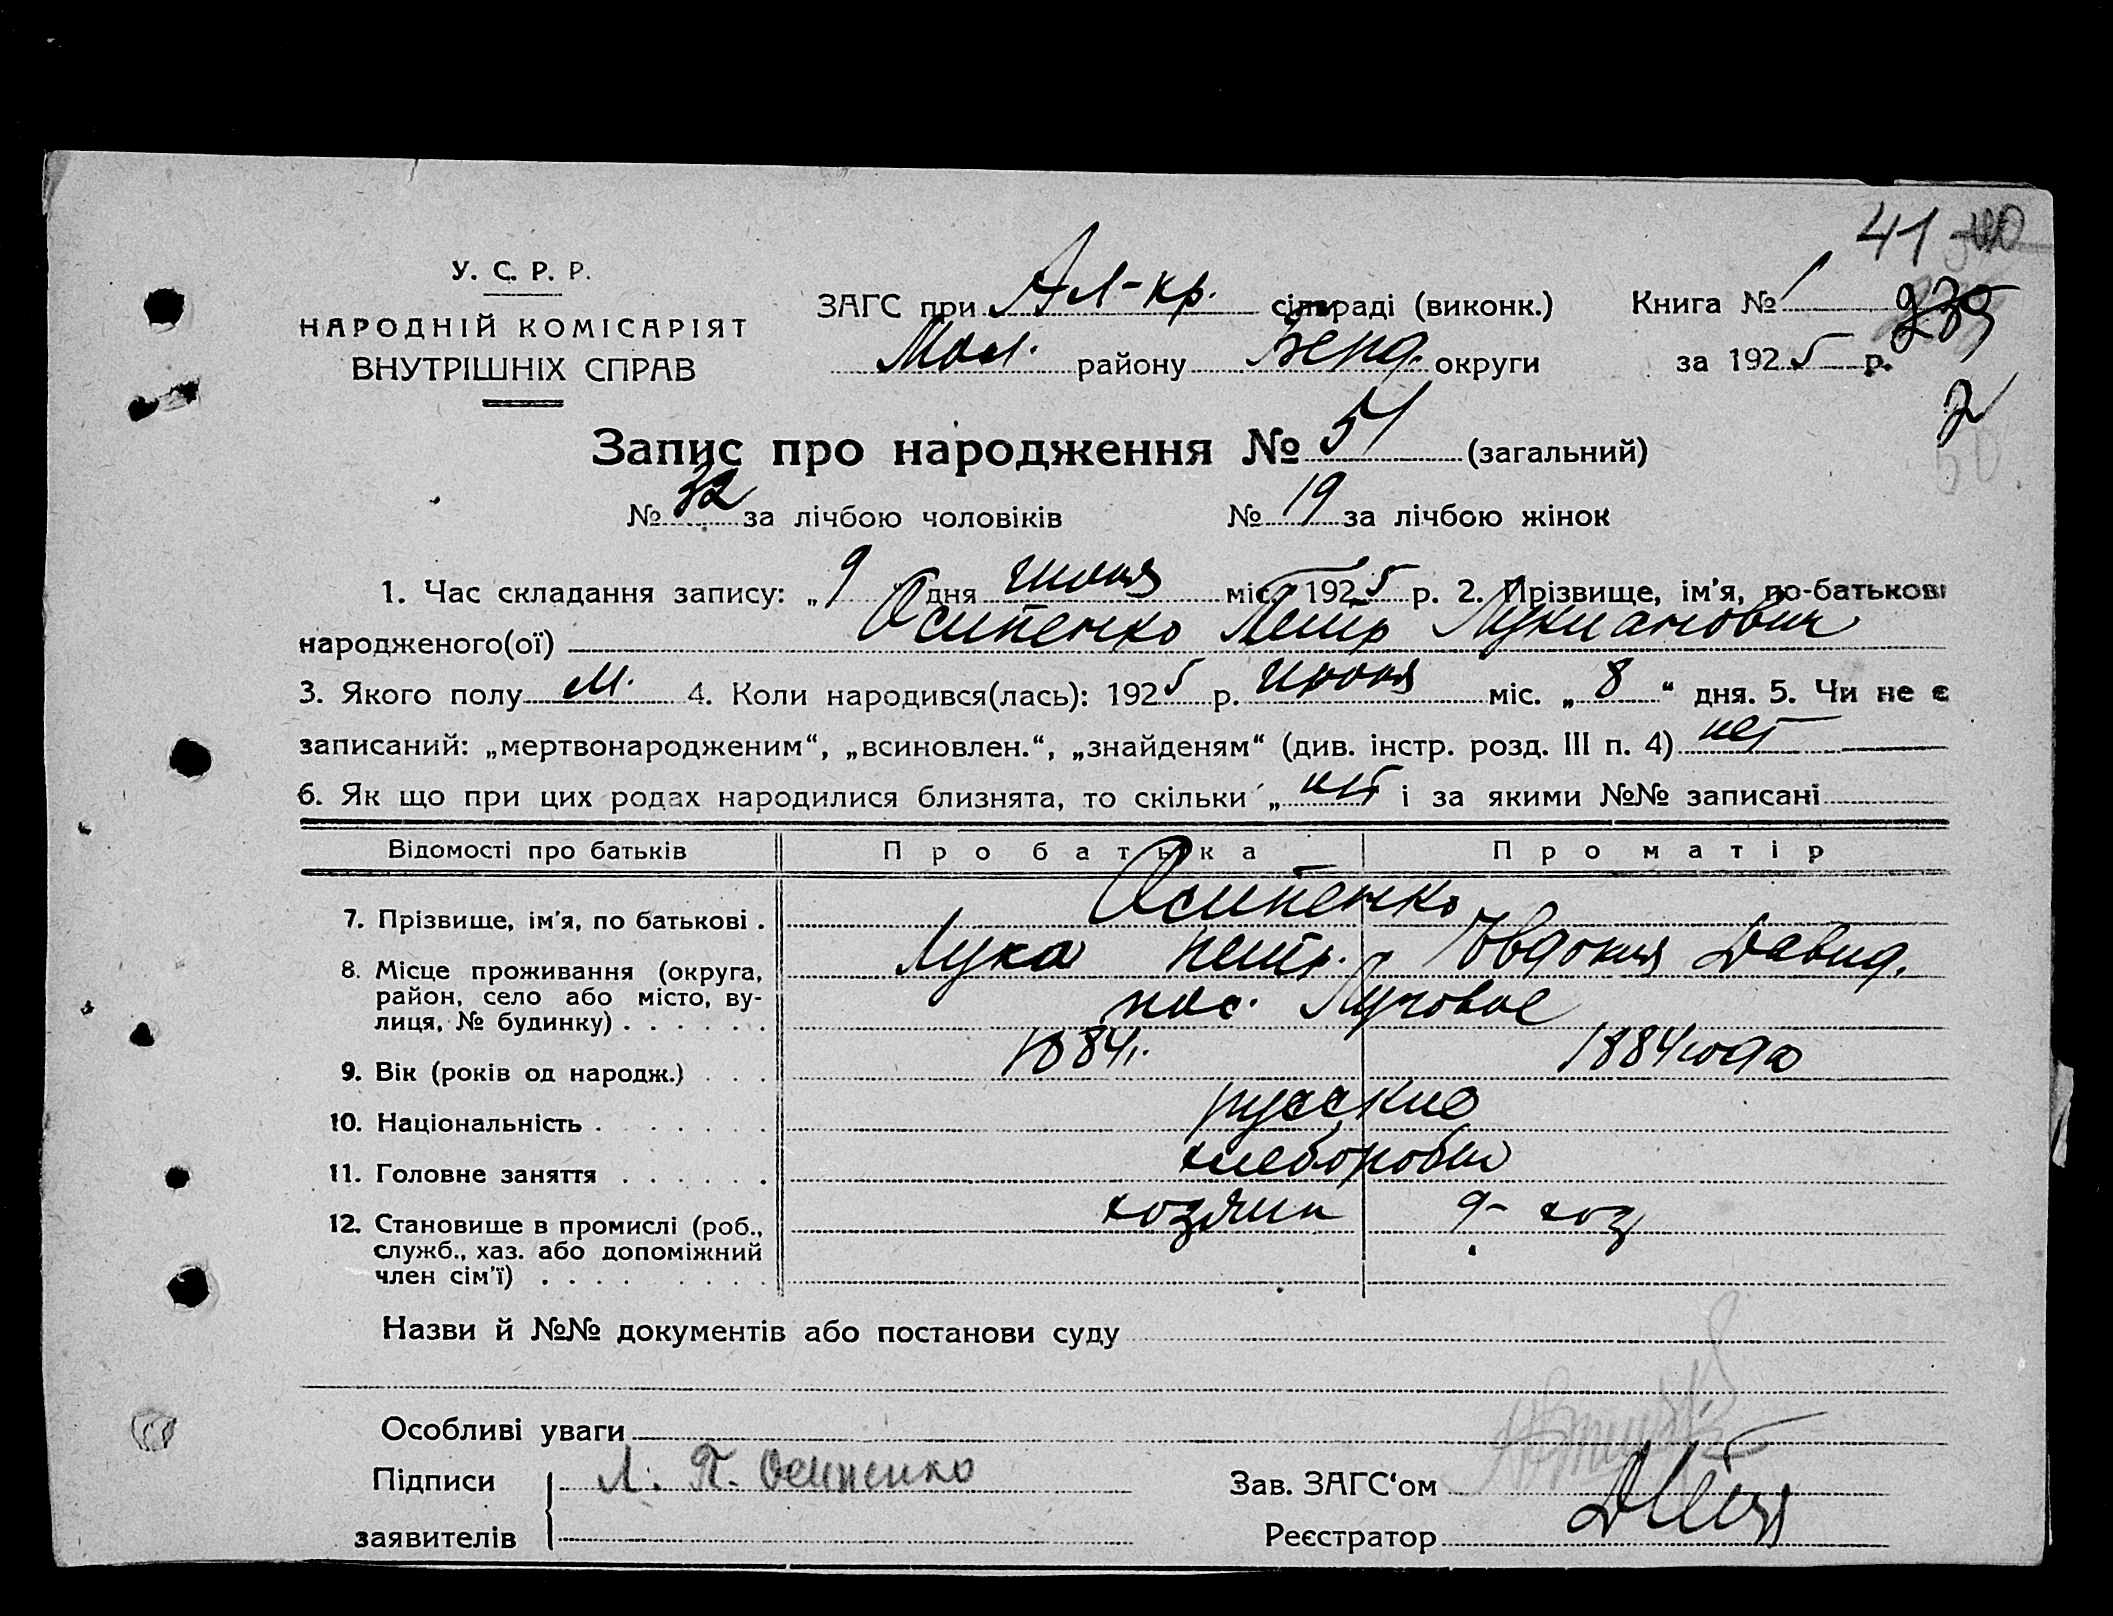 41
У. С. Р. Р.
НАРОДНІЙ КОМІСАРІЯТ
ВНУТРІШНІХ СПРАВ
ЗАГС при Ал-кр. сільраді (виконк.) Книга № 1 239
Мол. району Берд. округи за 1925 р.
Запис про народження № 51 (загальний)
№ 32 за лічбою чоловіків № 19 за лічбою жінок
1. Час складання запису: „9 дня июня міс. 1925 р. 2. Прізвище, ім'я, по-батькові
народженого(ої) Осипенко Петр Лукианович
3. Якого полу м. 4. Коли народився(лась): 1925 р. июня міс. „8“ дня. 5. Чи не є
записаний: „мертвонародженим“, „всиновлен.“, „знайденям“ (див. інстр. розд. III п. 4) нет
6. Як що при цих родах народилися близнята, то скільки „нет і за якими №№ записані
Відомості про батьків Про батька Про матір
7. Прізвище, ім'я, по батькові . Осипенко
Лука петр. Евдокия Давид.
8. Місце проживання (округа,
район, село або місто, ву-
лиця, № будинку) . . . . . . пос. Луговое
9. Вік (років од народж.) . . . 1884г. 1884 года
10. Національність . . . . . . . русские
11. Головне заняття . . . . . . хлеборобы
12. Становище в промислі (роб., хозяин д- хоз
служб., хаз. або допоміжний
член сім'ї) . . . . . . . . .
Назви й №№ документів або постанови суду
Особливі уваги
Підписи Л. П. Осипенко Зав. ЗАГС‘ом
заявителів Реєстратор